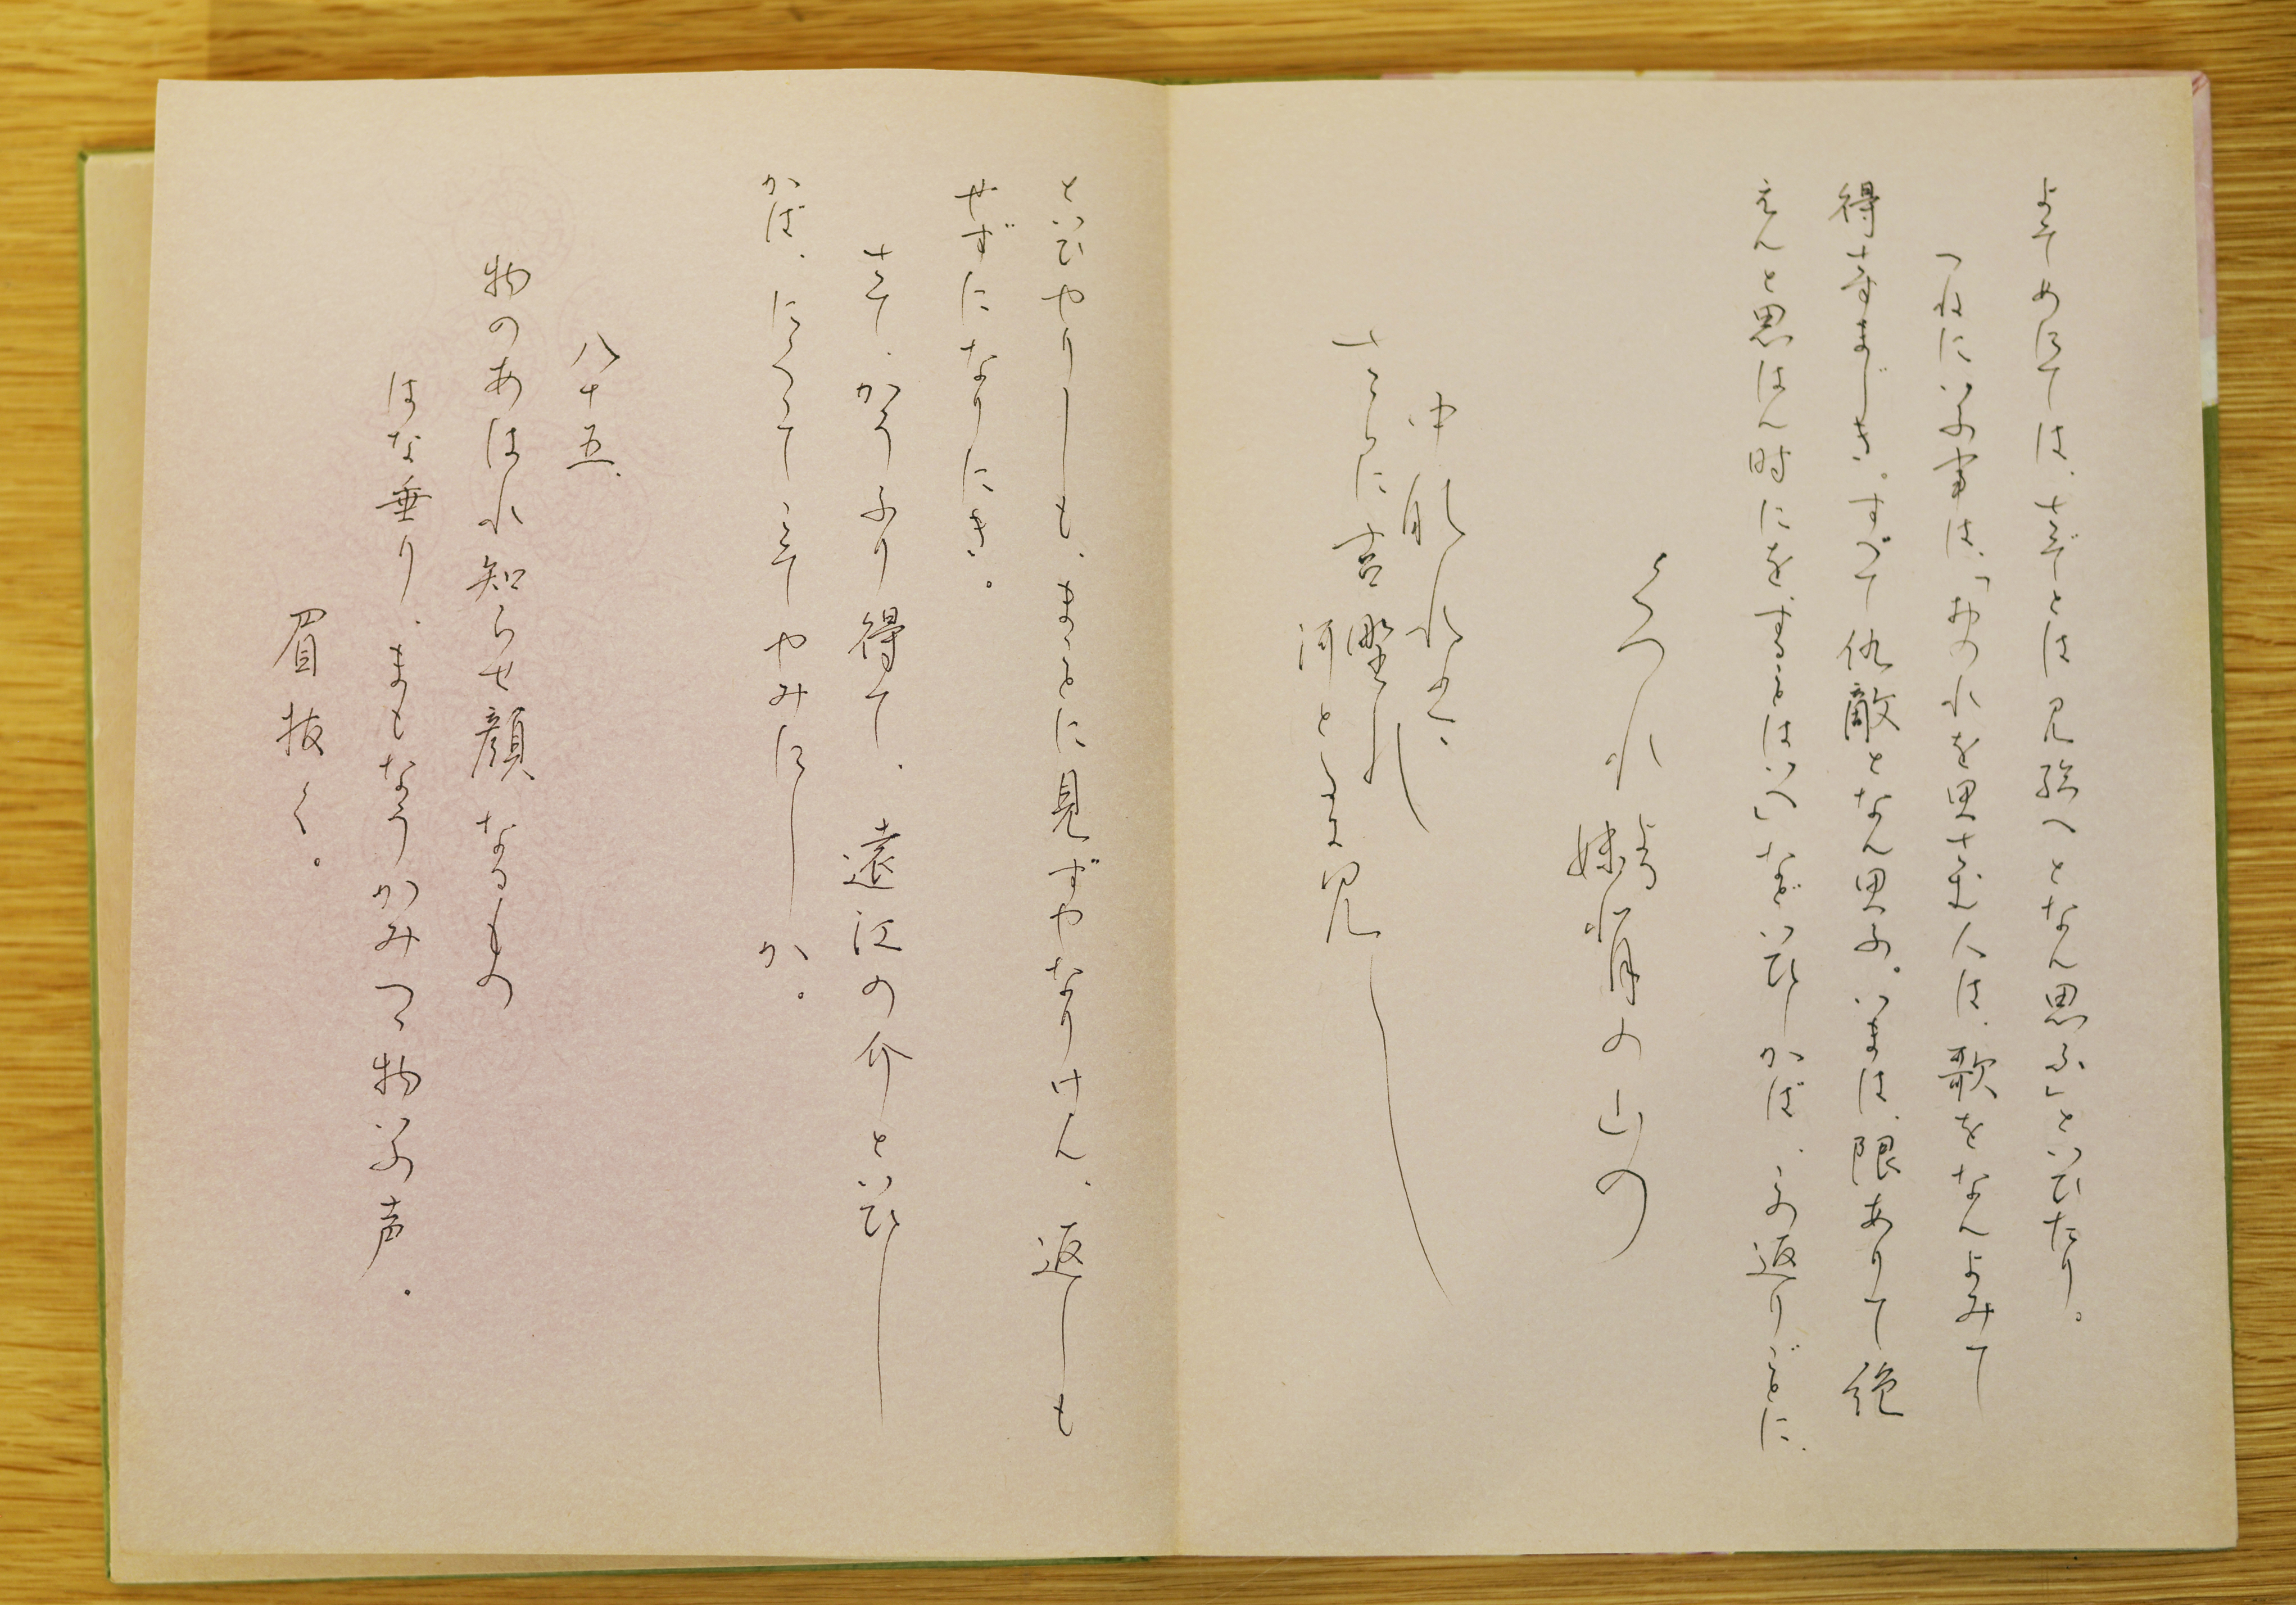 よそめにては、さぞとは見給へとなん思ふ」といひたり。
つねにいふ事は、「おのれを思さむ人は、歌をなんよみて
得さすまじき。すべて仇敵となん思ふ。いまは、限ありて絶
えんと思はん時にを、さることはいへ」などいひしかば、この返りごとに、
くつれよる妹背の山の
中なれは
さらに吉野の
河とたに見し
といひやりしも、まことに見ずやなりけん、返しも
せずになりにき。
さて、かうふり得て、遠江の介といひし
かば、にくくてこそやみにしか。
八十五、
物のあはれ知らせ顔なるもの
はな垂り、まもなうかみつゝ物いふ声。
眉抜く。